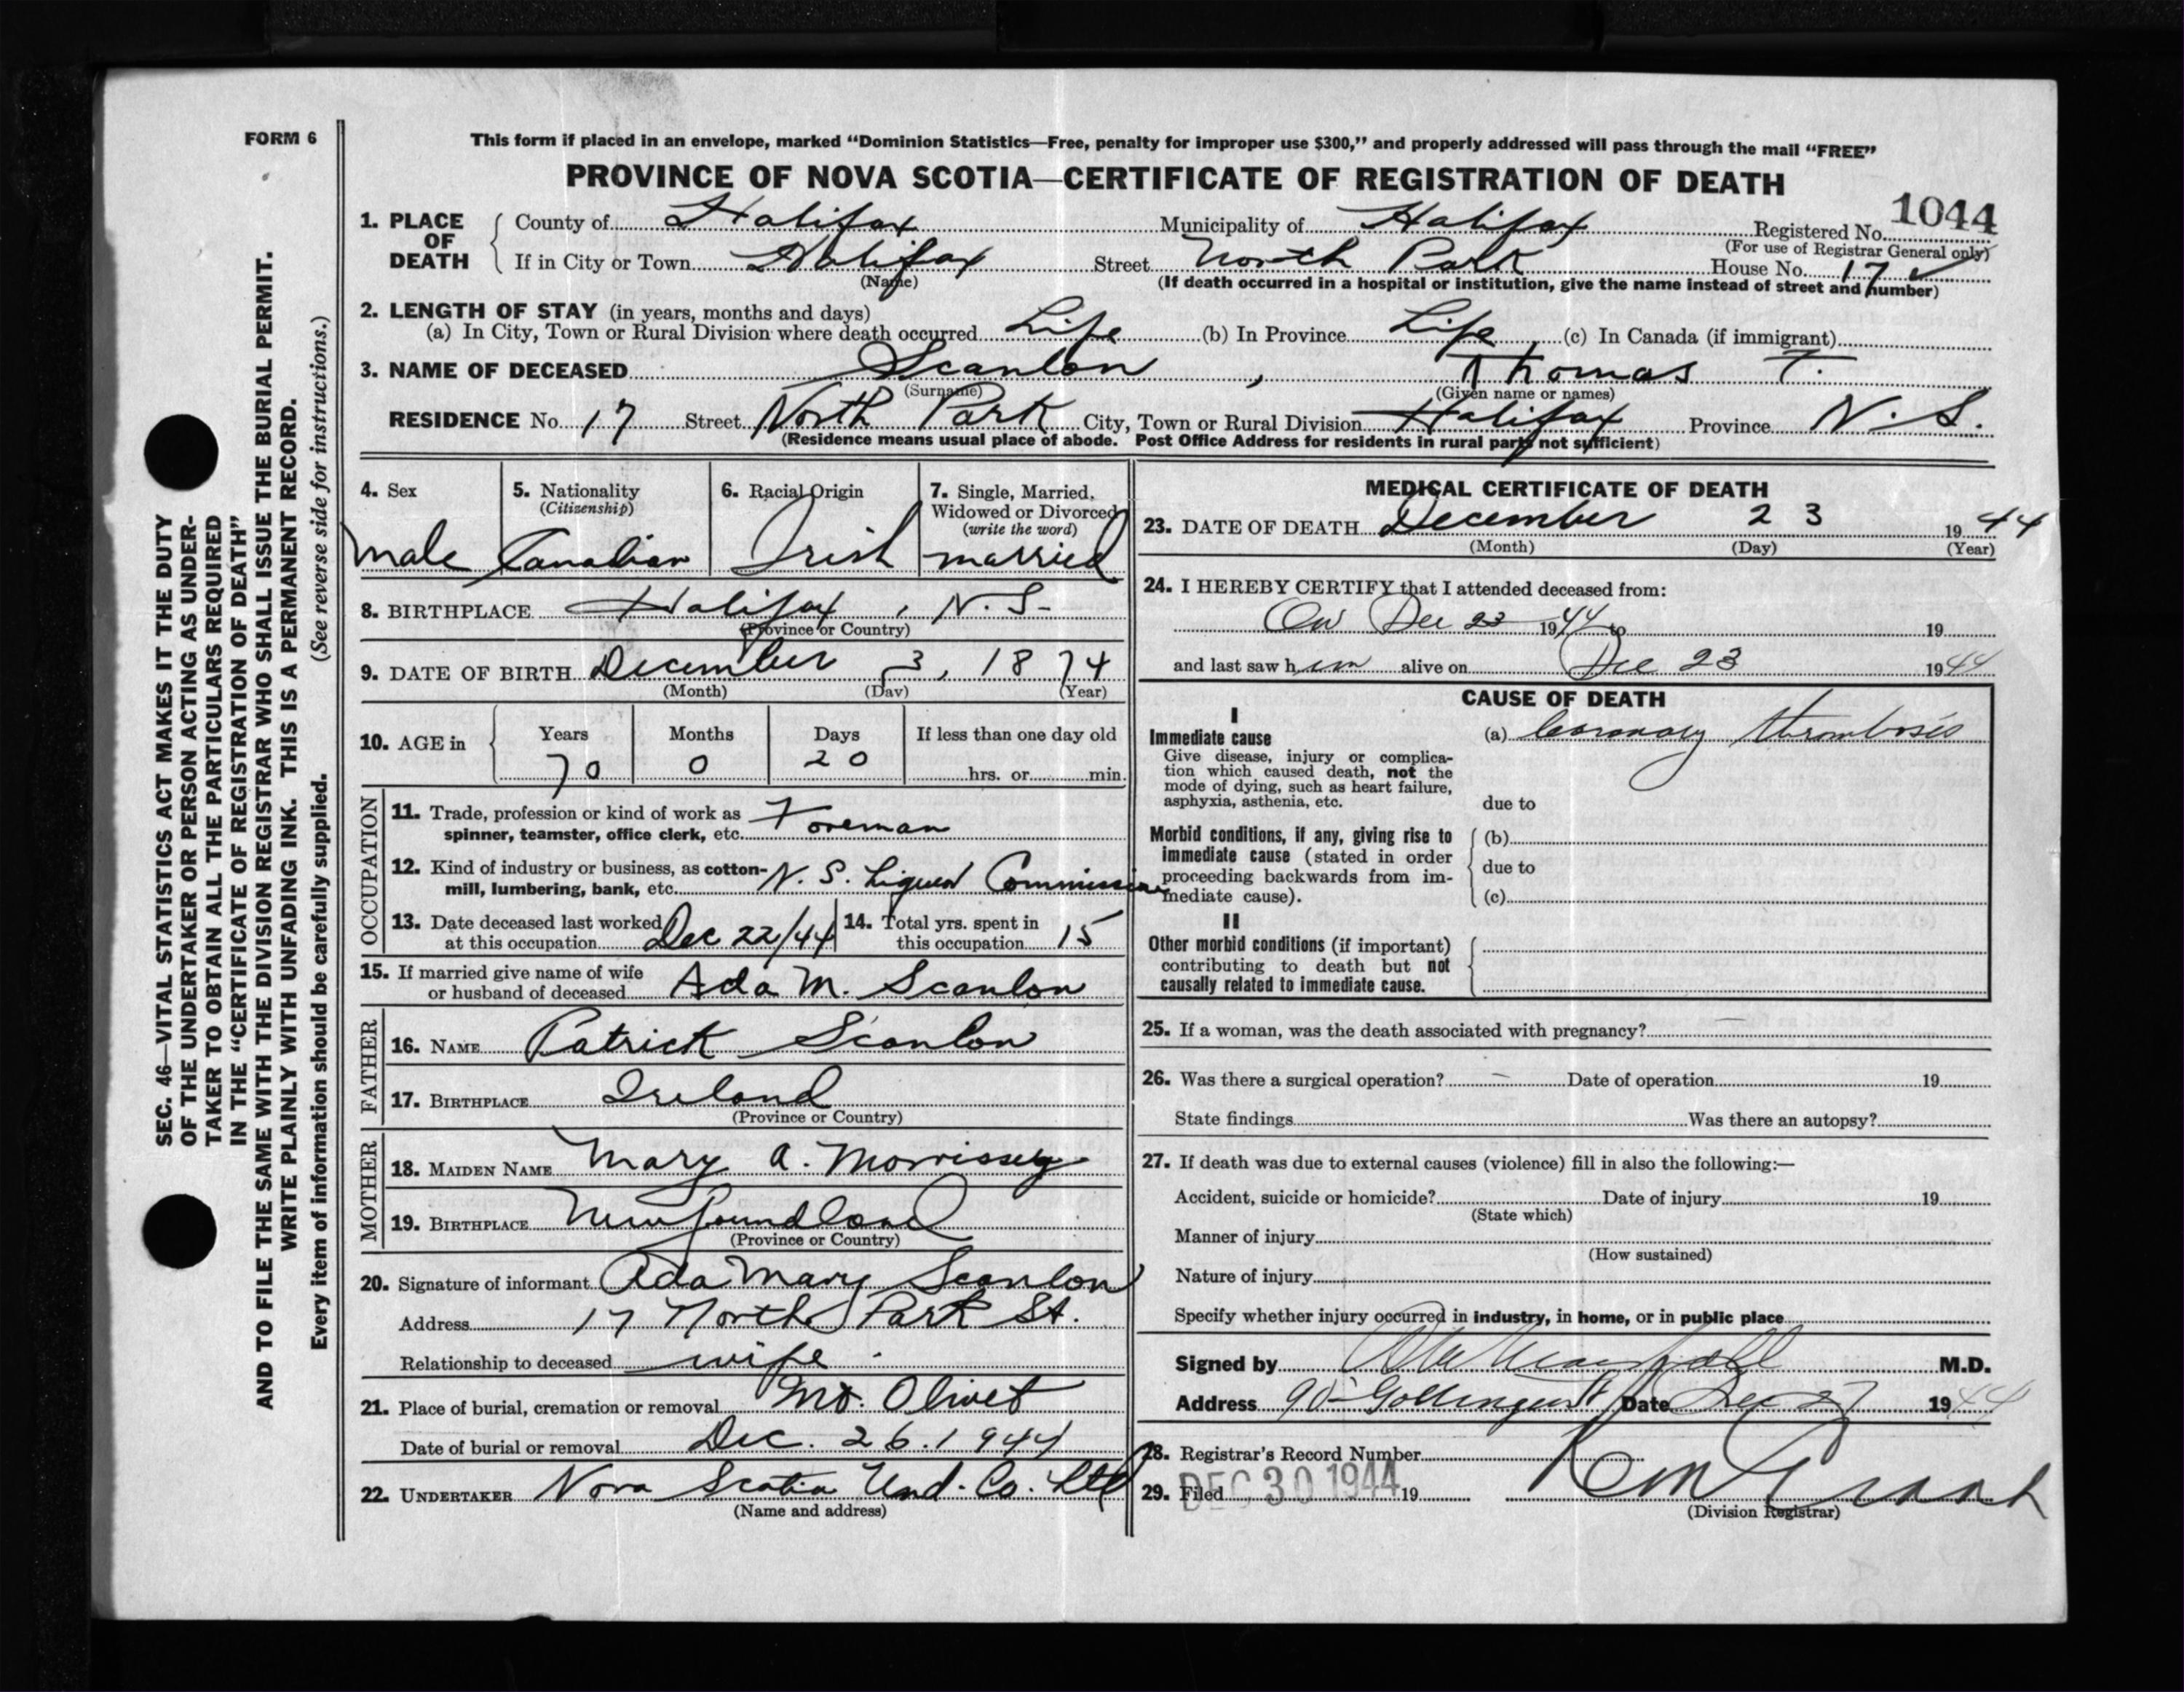 FORM 6
This form if placed in an envelope, marked “Dominion Statistics—Free, penalty for improper use $300,” and properly addressed will pass through the mail “FREE”
PROVINCE OF NOVA SCOTIA—CERTIFICATE OF REGISTRATION OF DEATH
1044
1. PLACE OF DEATH County of Halifax Municipality of Halifax Registered No.
(For use of Registrar General only)
If in City or Town Halifax Street North Park House No. 17 ✓
(Name) (If death occurred in a hospital or institution, give the name instead of street and number)
2. LENGTH OF STAY (in years, months and days)
(a) In City, Town or Rural Division where death occurred Life (b) In Province Life (c) In Canada (if immigrant)
3. NAME OF DECEASED Scanlon, Thomas T.
(Surname) (Given name or names)
RESIDENCE No. 17 Street North Park City, Town or Rural Division Halifax Province N. S.
(Residence means usual place of abode. Post Office Address for residents in rural parts not sufficient)
4. Sex 5. Nationality 6. Racial Origin 7. Single, Married,
(Citizenship) Widowed or Divorced
(write the word)
male Canadian Irish married
8. BIRTHPLACE Halifax, N. S.
(Province or Country)
9. DATE OF BIRTH December 3, 1874
(Month) (Day) (Year)
10. AGE in Years Months Days If less than one day old
70 0 20 hrs. or min.
OCCUPATION
11. Trade, profession or kind of work as
spinner, teamster, office clerk, etc. Foreman
12. Kind of industry or business, as cotton-
mill, lumbering, bank, etc. N. S. Liquor Commission
13. Date deceased last worked
at this occupation Dec 22/44
14. Total yrs. spent in
this occupation 15
15. If married give name of wife
or husband of deceased Ada M. Scanlon
FATHER
16. NAME Patrick Scanlon
17. BIRTHPLACE Ireland
(Province or Country)
MOTHER
18. MAIDEN NAME Mary A. Morrissey
19. BIRTHPLACE Newfoundland
(Province or Country)
20. Signature of informant Ada Mary Scanlon
Address 17 North Park St.
Relationship to deceased wife
21. Place of burial, cremation or removal Mt. Olivet
Date of burial or removal Dec. 26. 1944
22. UNDERTAKER Nova Scotia Und. Co. Ltd
(Name and address)
MEDICAL CERTIFICATE OF DEATH
23. DATE OF DEATH December 23 1944
(Month) (Day) (Year)
24. I HEREBY CERTIFY that I attended deceased from:
On Dec 23 1944 to 19
and last saw him alive on Dec 23 1944
CAUSE OF DEATH
I
Immediate cause
Give disease, injury or complica-
tion which caused death, not the
mode of dying, such as heart failure,
asphyxia, asthenia, etc.
(a) Coronary thrombosis
due to
Morbid conditions, if any, giving rise to
immediate cause (stated in order
proceeding backwards from im-
mediate cause).
(b)
due to
(c)
II
Other morbid conditions (if important)
contributing to death but not
causally related to immediate cause.
25. If a woman, was the death associated with pregnancy? —
26. Was there a surgical operation? — Date of operation 19
State findings Was there an autopsy?
27. If death was due to external causes (violence) fill in also the following:—
Accident, suicide or homicide? Date of injury 19
(State which)
Manner of injury
(How sustained)
Nature of injury
Specify whether injury occurred in industry, in home, or in public place
Signed by M.D.
Address 90 Date Dec 27 1944
28. Registrar's Record Number
29. Filed DEC 30 1944 19
(Division Registrar)
SEC. 46—VITAL STATISTICS ACT MAKES IT THE DUTY
OF THE UNDERTAKER OR PERSON ACTING AS UNDER-
TAKER TO OBTAIN ALL THE PARTICULARS REQUIRED
IN THE “CERTIFICATE OF REGISTRATION OF DEATH”
AND TO FILE THE SAME WITH THE DIVISION REGISTRAR WHO SHALL ISSUE THE BURIAL PERMIT.
WRITE PLAINLY WITH UNFADING INK. THIS IS A PERMANENT RECORD.
Every item of information should be carefully supplied. (See reverse side for instructions.)